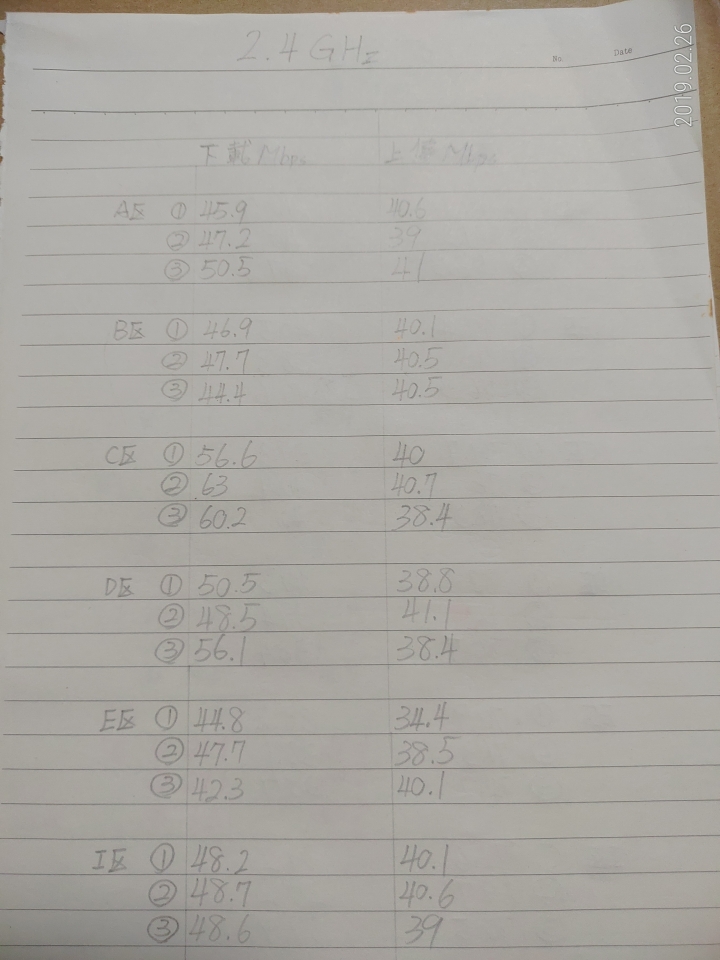 2.4 GHz
No.
Date
2019.02.26
下載 Mbps 上傳 Mbps
A区 ① 45.9 40.6
② 47.2 39
③ 50.5 41
B区 ① 46.9 40.1
② 47.7 40.5
③ 44.4 40.5
C区 ① 56.6 40
② 63 40.7
③ 60.2 38.4
D区 ① 50.5 38.8
② 48.5 41.1
③ 56.1 38.4
E区 ① 44.8 34.4
② 47.7 38.5
③ 42.3 40.1
I区 ① 48.2 40.1
② 48.7 40.6
③ 48.6 39